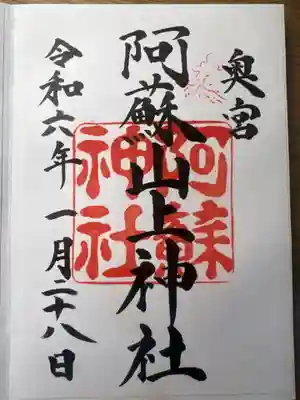 奥宮
阿蘇山上神社
阿蘇
神社
令和六年一月二十八日